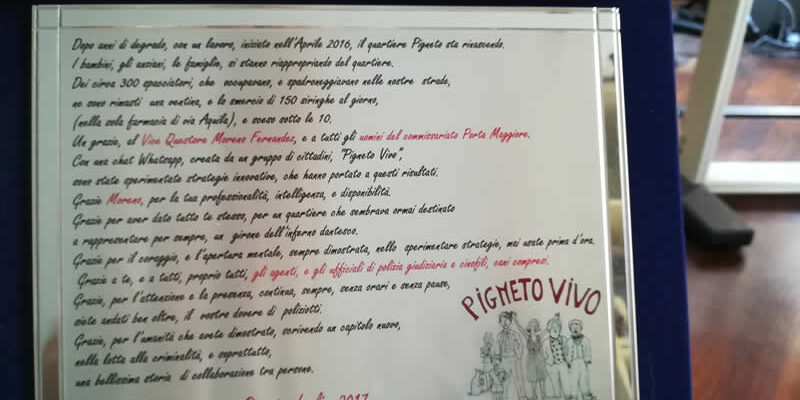 Dopo anni di degrado, con un lavoro, iniziato nell'Aprile 2016, il quartiere Pigneto sta rinascendo.
I bambini, gli anziani, le famiglie, si stanno riappropriando del quartiere.
Dei circa 300 spacciatori, che occupavano, e spadroneggiavano nelle nostre strade,
ne sono rimasti una ventina, e lo smercio di 150 siringhe al giorno,
(nella sola farmacia di via Aquila), e sceso sotto le 10.
Un grazie, al Vice Questore Moreno Fernandez, e a tutti gli uomini del commissariato Porta Maggiore.
Con una chat Whatsapp, creata da un gruppo di cittadini, "Pigneto Vivo",
sono state sperimentate strategie innovative, che hanno portato a questi risultati.
Grazie Moreno, per la tua professionalità, intelligenza, e disponibilità.
Grazie per aver dato tutto te stesso, per un quartiere che sembrava ormai destinato
a rappresentare per sempre, un girone dell'inferno dantesco.
Grazie per il coraggio, e l'apertura mentale, sempre dimostrata, nello sperimentare strategie, mai usate prima d'ora.
Grazie a te, e a tutti, proprio tutti, gli agenti, e gli ufficiali di polizia giudiziaria e cinofili, cani compresi.
Grazie, per l'attenzione e la presenza, continua, sempre, senza orari e senza pause,
siete andati ben oltre, il vostro dovere di poliziotti.
Grazie, per l'umanità che avete dimostrato, scrivendo un capitolo nuovo,
nella lotta alla criminalità, e soprattutto,
una bellissima storia di collaborazione tra persone.
PIGNETO VIVO
2017